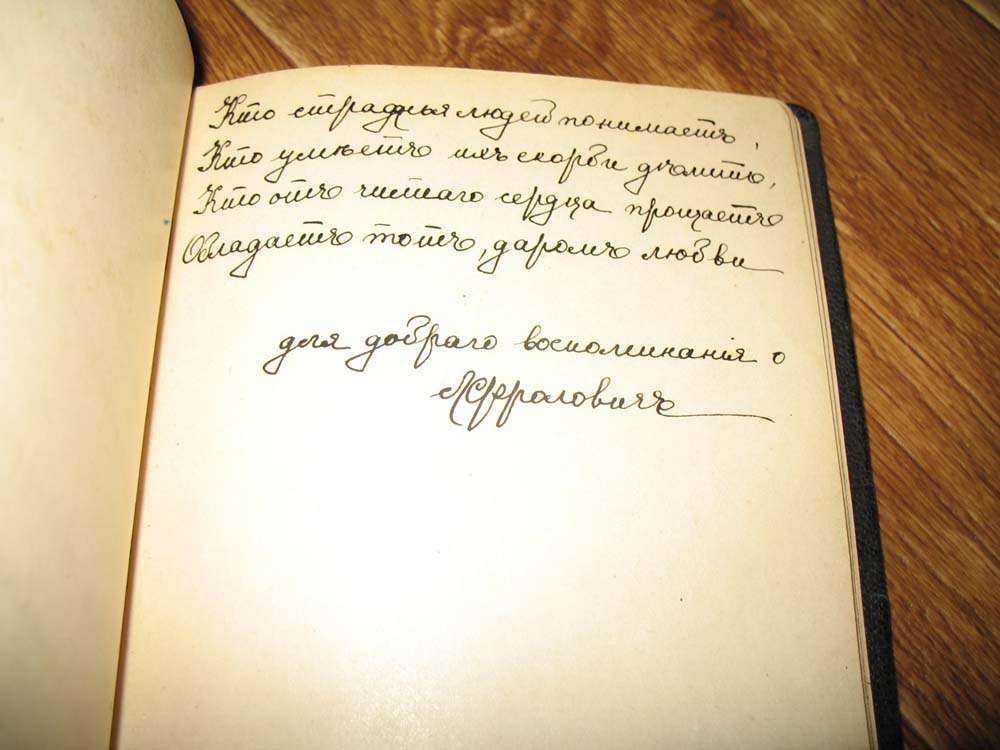 Кто страданья людей понимаетъ,
Кто умѣетъ ихъ скорби дѣлить,
Кто отъ чистаго сердца прощаетъ
Обладаетъ тотъ, даромъ любви
для добраго воспоминанія о